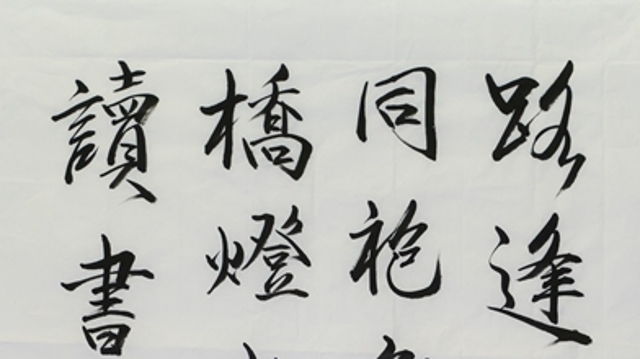 路逢
同袍
橋燈
讀書